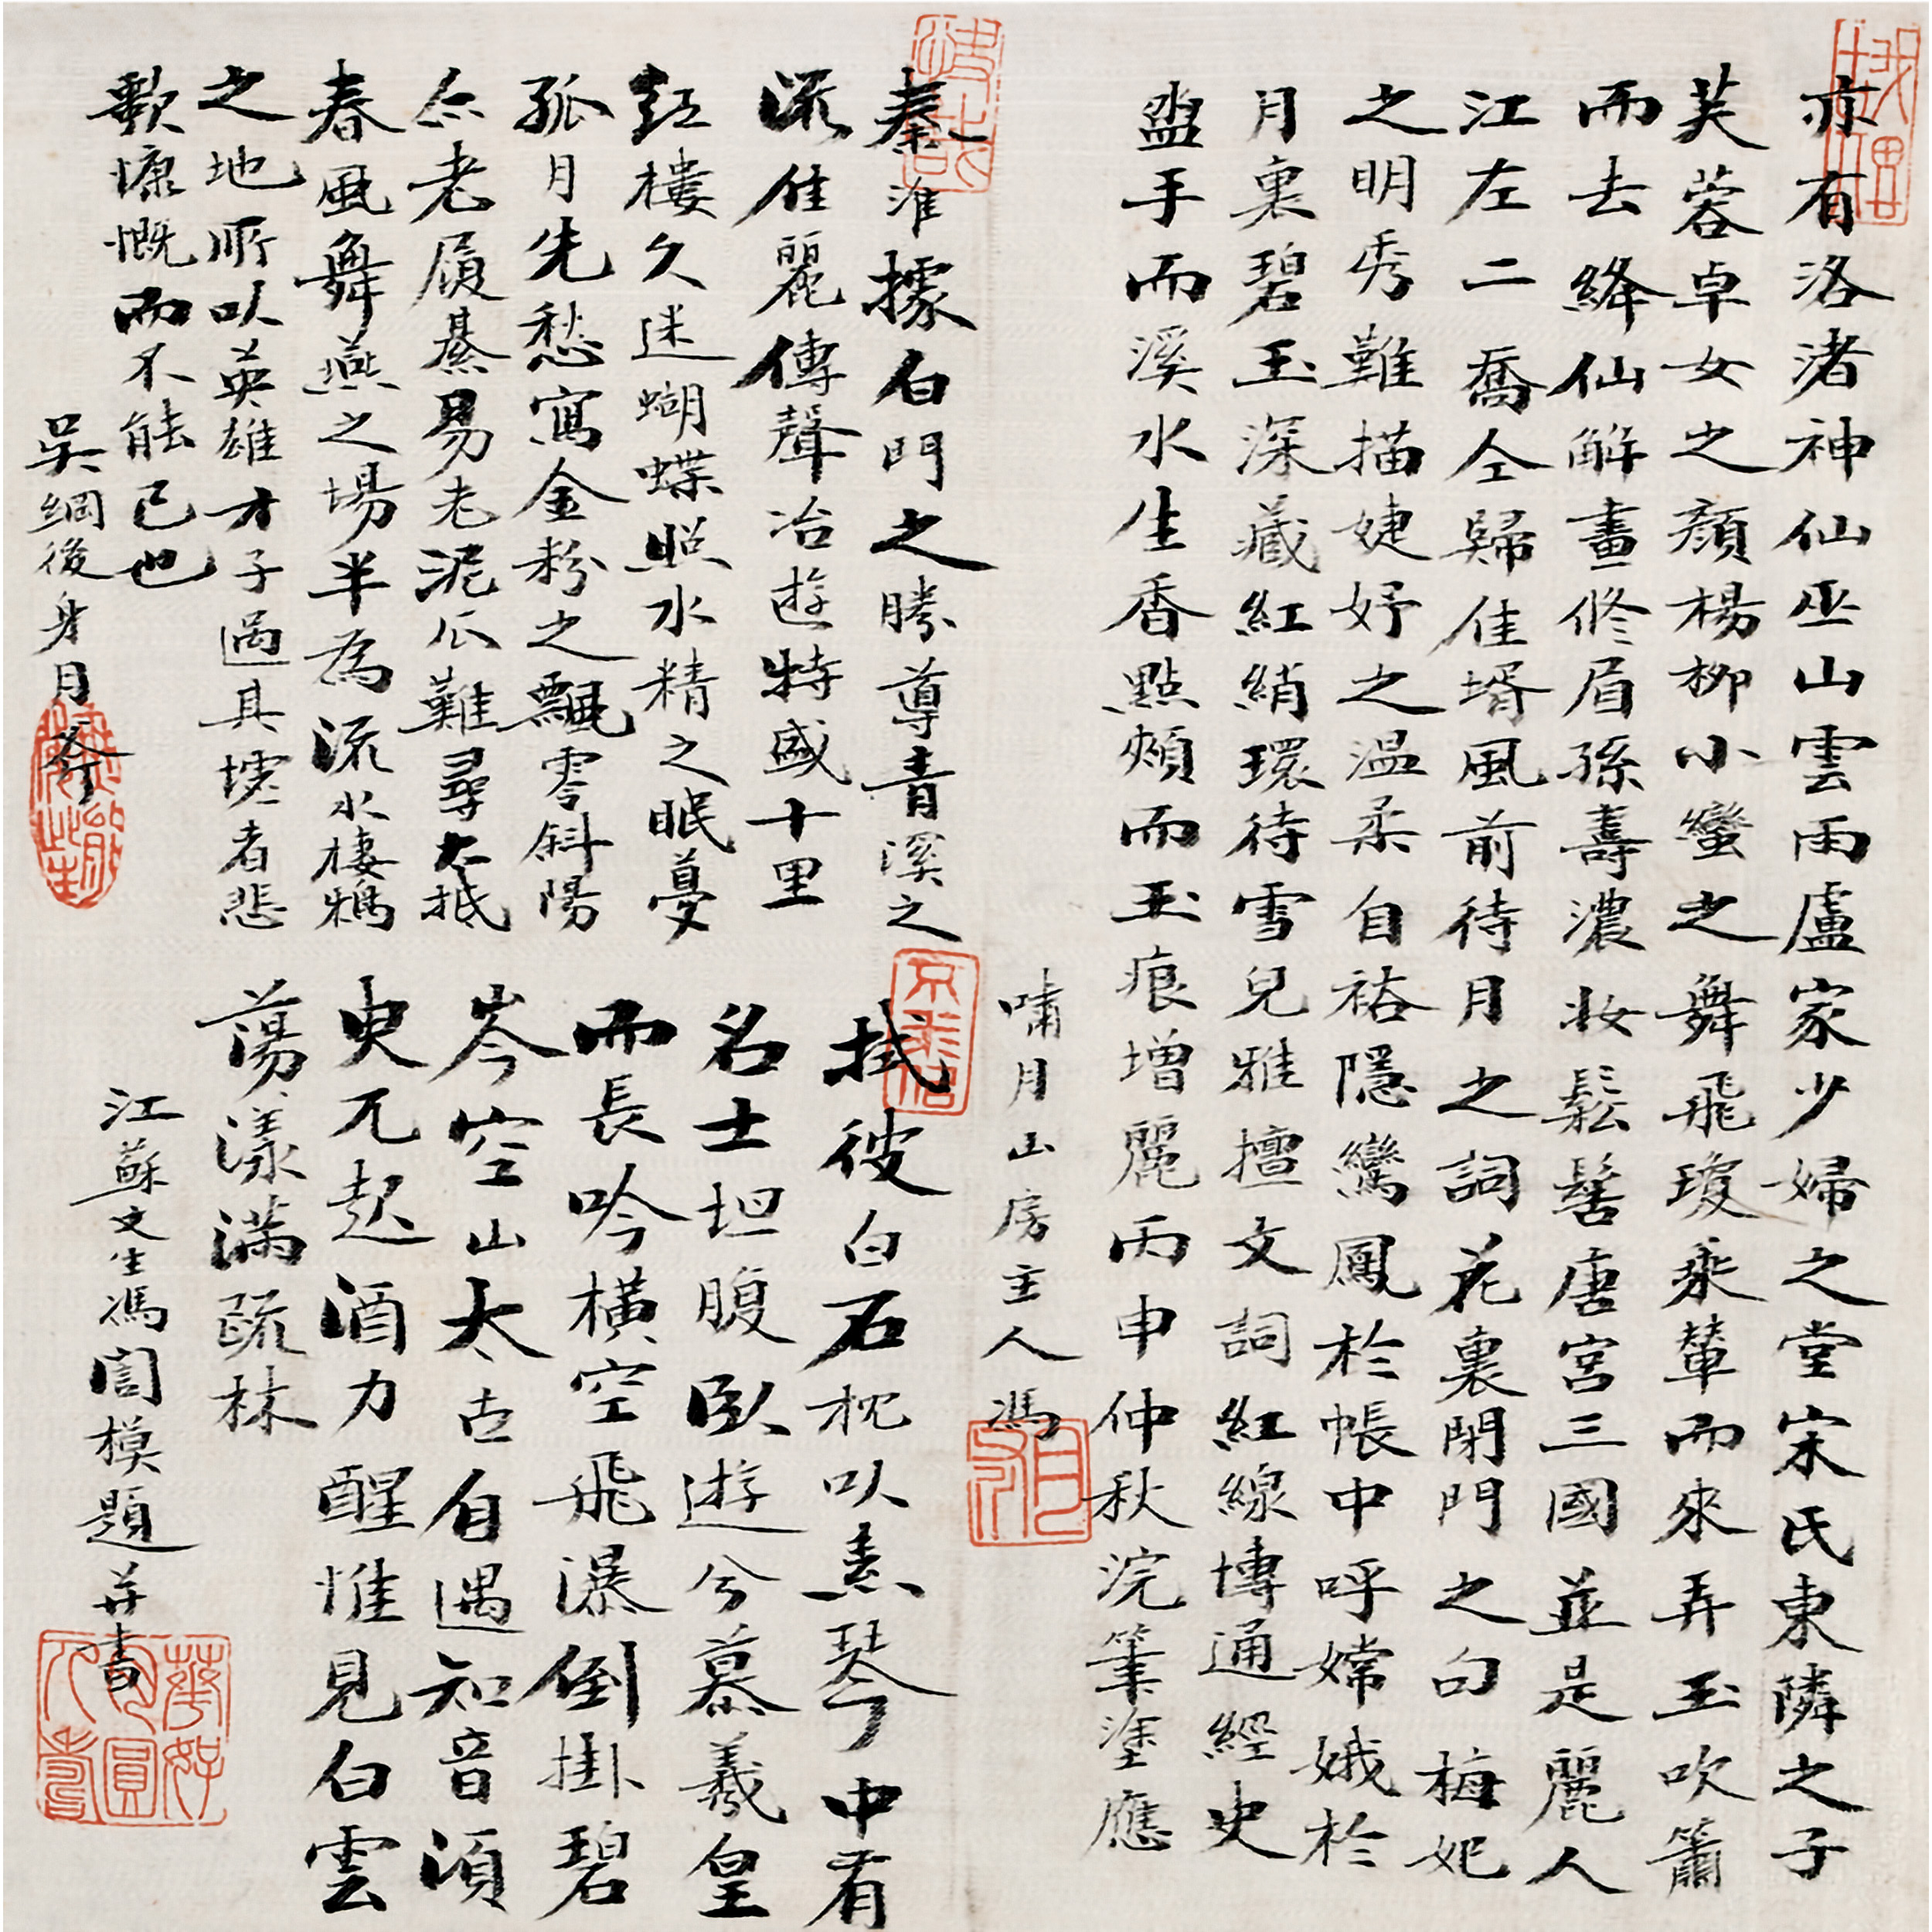 亦有洛渚神仙巫山雲雨盧家少婦之堂宋氏東隣之子
芙蓉卓女之顏楊柳小蠻之舞飛瓊乘輦而來弄玉吹簫
而去絳仙解畫修眉孫壽濃妝鬆髻唐宮三國並是麗人
江左二喬仝歸佳壻風前待月之詞花裏閉門之句梅妃
之明秀難描婕妤之温柔自裕隱鸞鳳於帳中呼嫦娥於
月裏碧玉深藏紅綃環待雪兒雅擅文詞紅線博通經史
盥手而溪水生香點頰而玉痕增麗丙申仲秋浣筆塗應
嘯月山房主人馮
秦淮據白門之勝導青溪之
流佳麗傳聲冶遊特盛十里
紅樓久迷蝴蝶照水精之眠夢
孤月先愁寫金粉之飄零斜陽
亦老屐綦易老泥爪難尋大抵
春風舞燕之場半為流水棲鴉
之地所以英雄才子過其墟者悲
歌慷慨而不能已也
吳綱後身月
拭彼白石枕以素琴中有
名士坦腹臥遊兮慕羲皇
而長吟橫空飛瀑倒掛碧
岑空山太古自遇知音須
臾兀起酒力醒惟見白雲
蕩漾滿疏林
江蘇文生馮誾模題并書